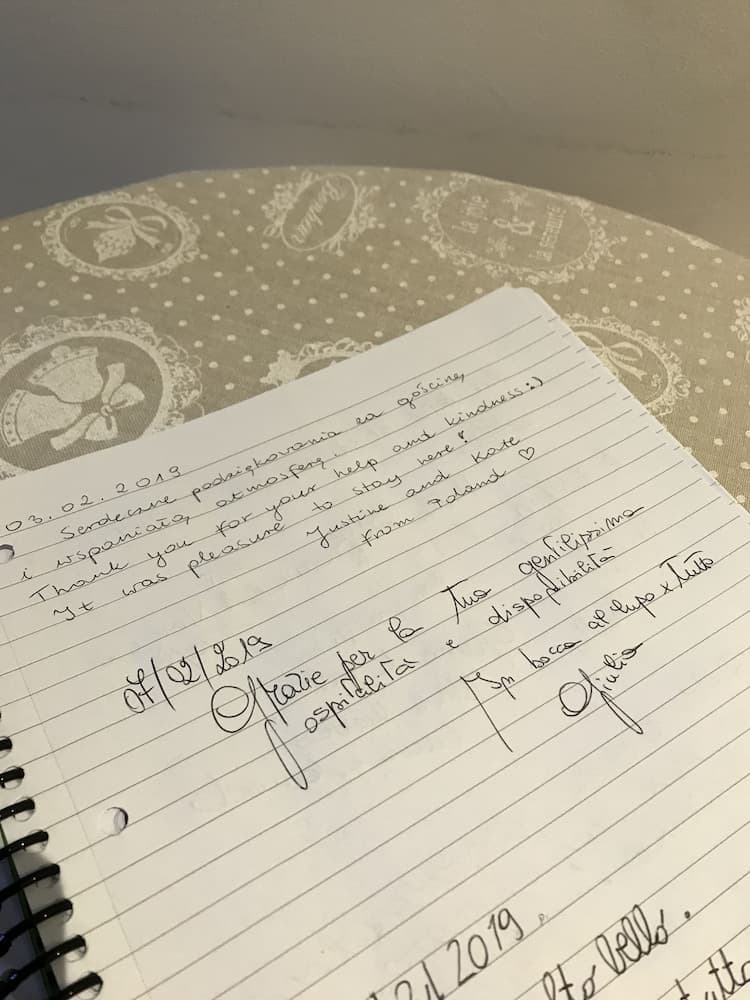 Bonheur
la joie
&
la beauté
03.02.2019
Serdeczne podziękowania za gościnę
i wspaniałą atmosferę.
Thank you for your help and kindness :)
It was pleasure to stay here!
Justine and Kate
from Poland ♡
07/02/2019
Grazie per la tua gentilissima
ospitalità e disponibilità
In bocca al lupo x tutto
Giulia
2019
bello.